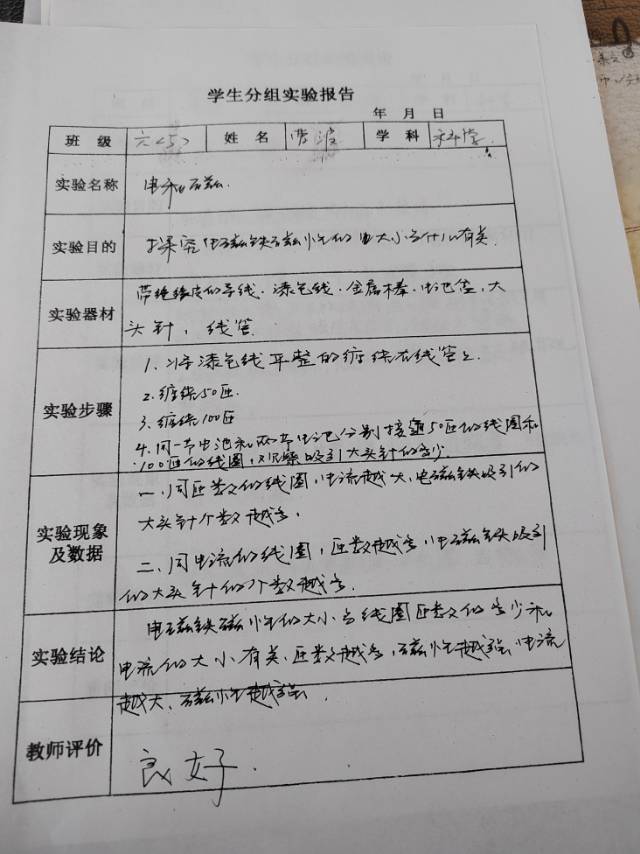 学生分组实验报告
年 月 日
班 级 六<5> 姓 名 曹波 学 科 科学
实验名称 电和磁
实验目的 探究电磁铁磁性的大小与什么有关.
实验器材 带绝缘皮的导线. 漆包线. 金属棒. 电池盒, 大
头针, 线管
实验步骤 1. 将漆包线平整的缠绕在线管上.
2. 缠绕50匝.
3. 缠绕100匝
4. 同一节电池和两节电池分别接通50匝的线圈和
100匝的线圈, 观察吸引大头针的多少.
实验现象及数据 一. 同匝数的线圈, 电流越大, 电磁铁吸引的
大头针个数越多.
二. 同电流的线圈, 匝数越多, 电磁铁吸引
的大头针的个数越多.
实验结论 电磁铁磁性的大小与线圈匝数的多少和
电流的大小有关. 匝数越多, 磁性越强. 电流
越大、磁性越强.
教师评价 良好.